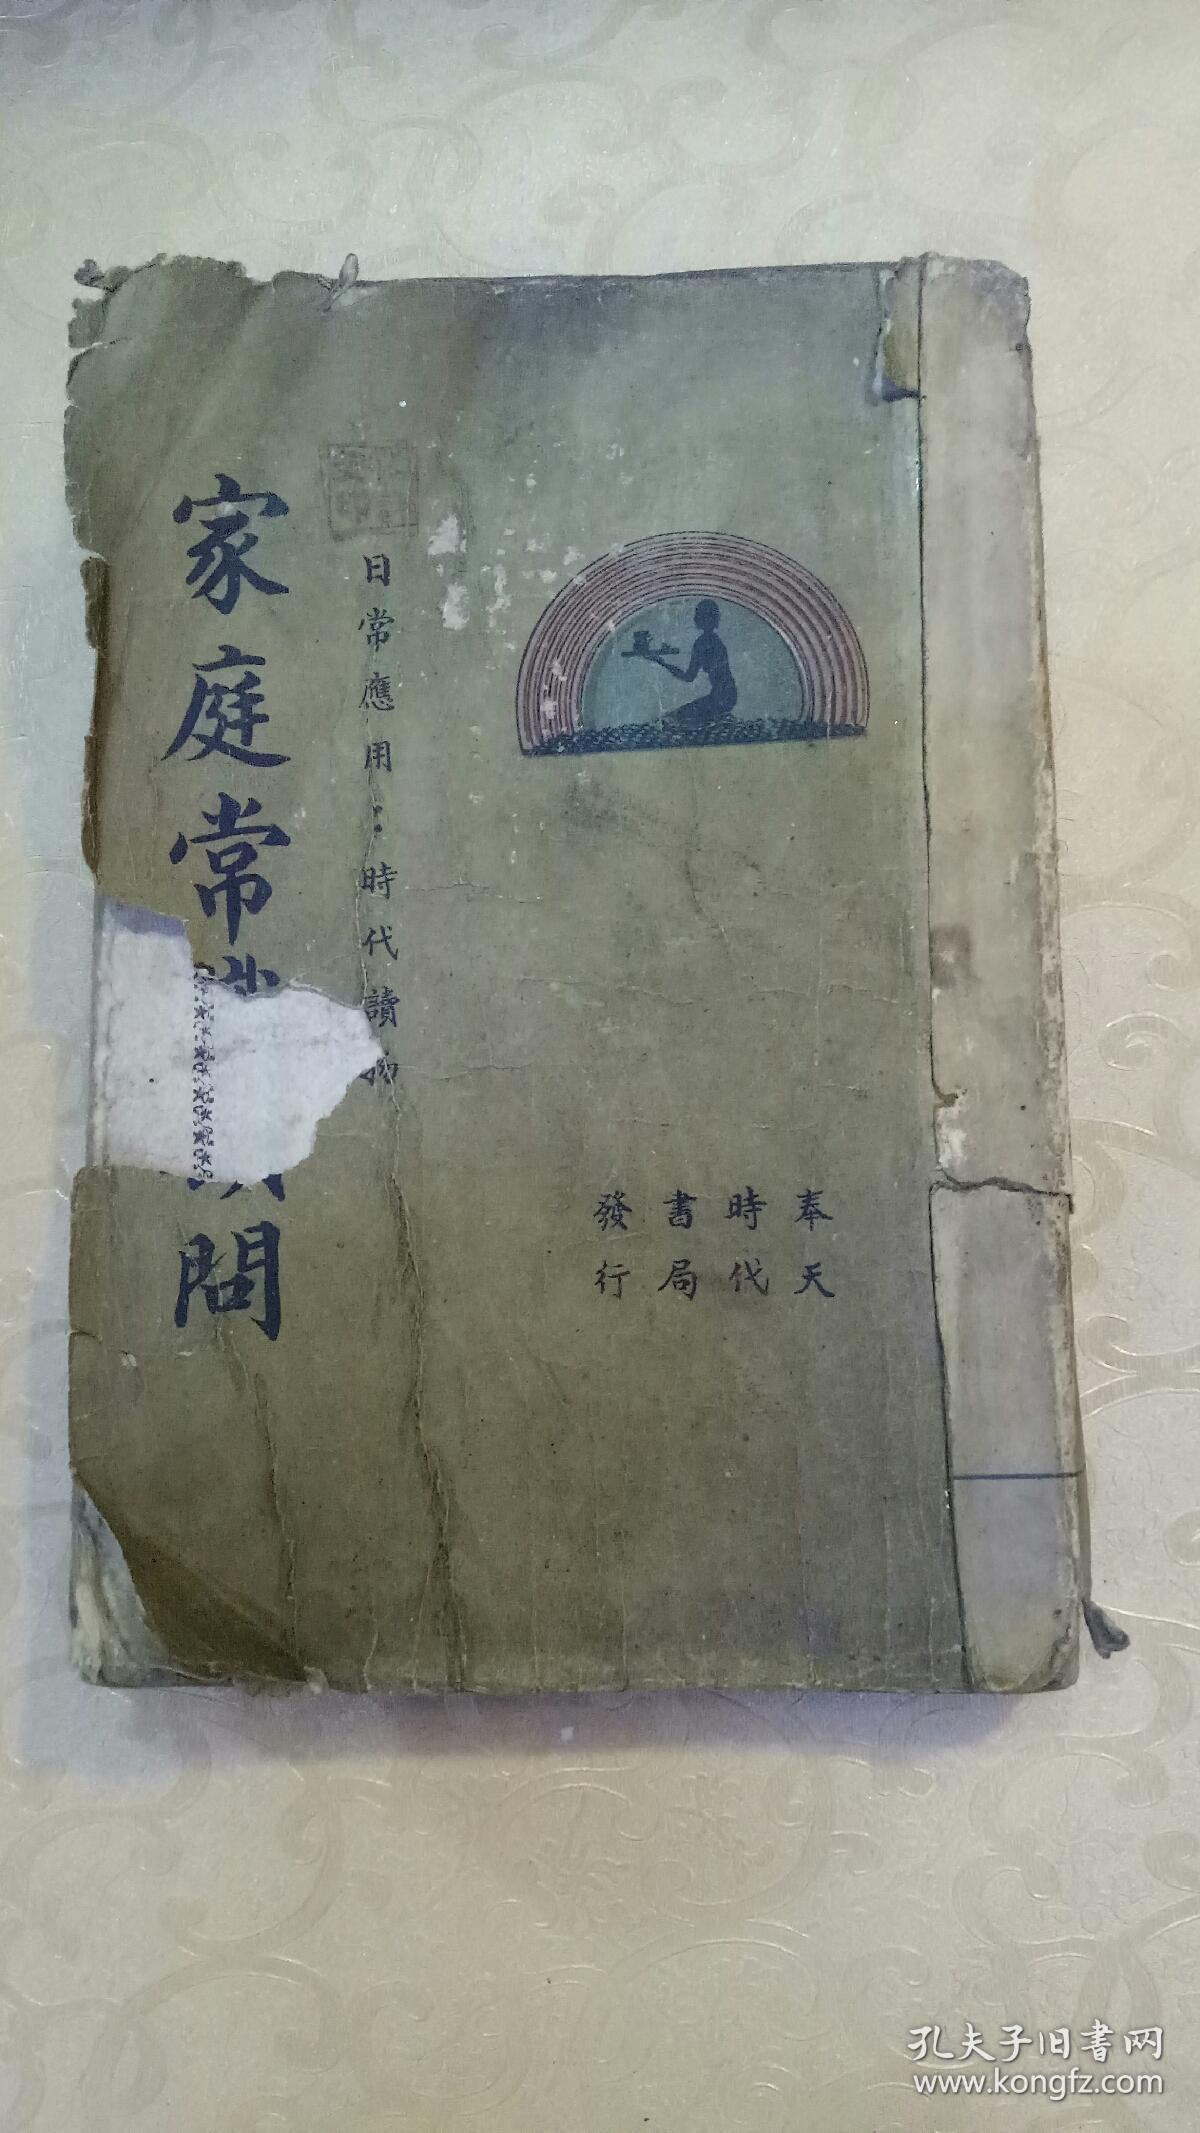 家庭常問
日常應用：時代讀物
奉天
時代
書局
發行
孔夫子旧书网
www.kongfz.com